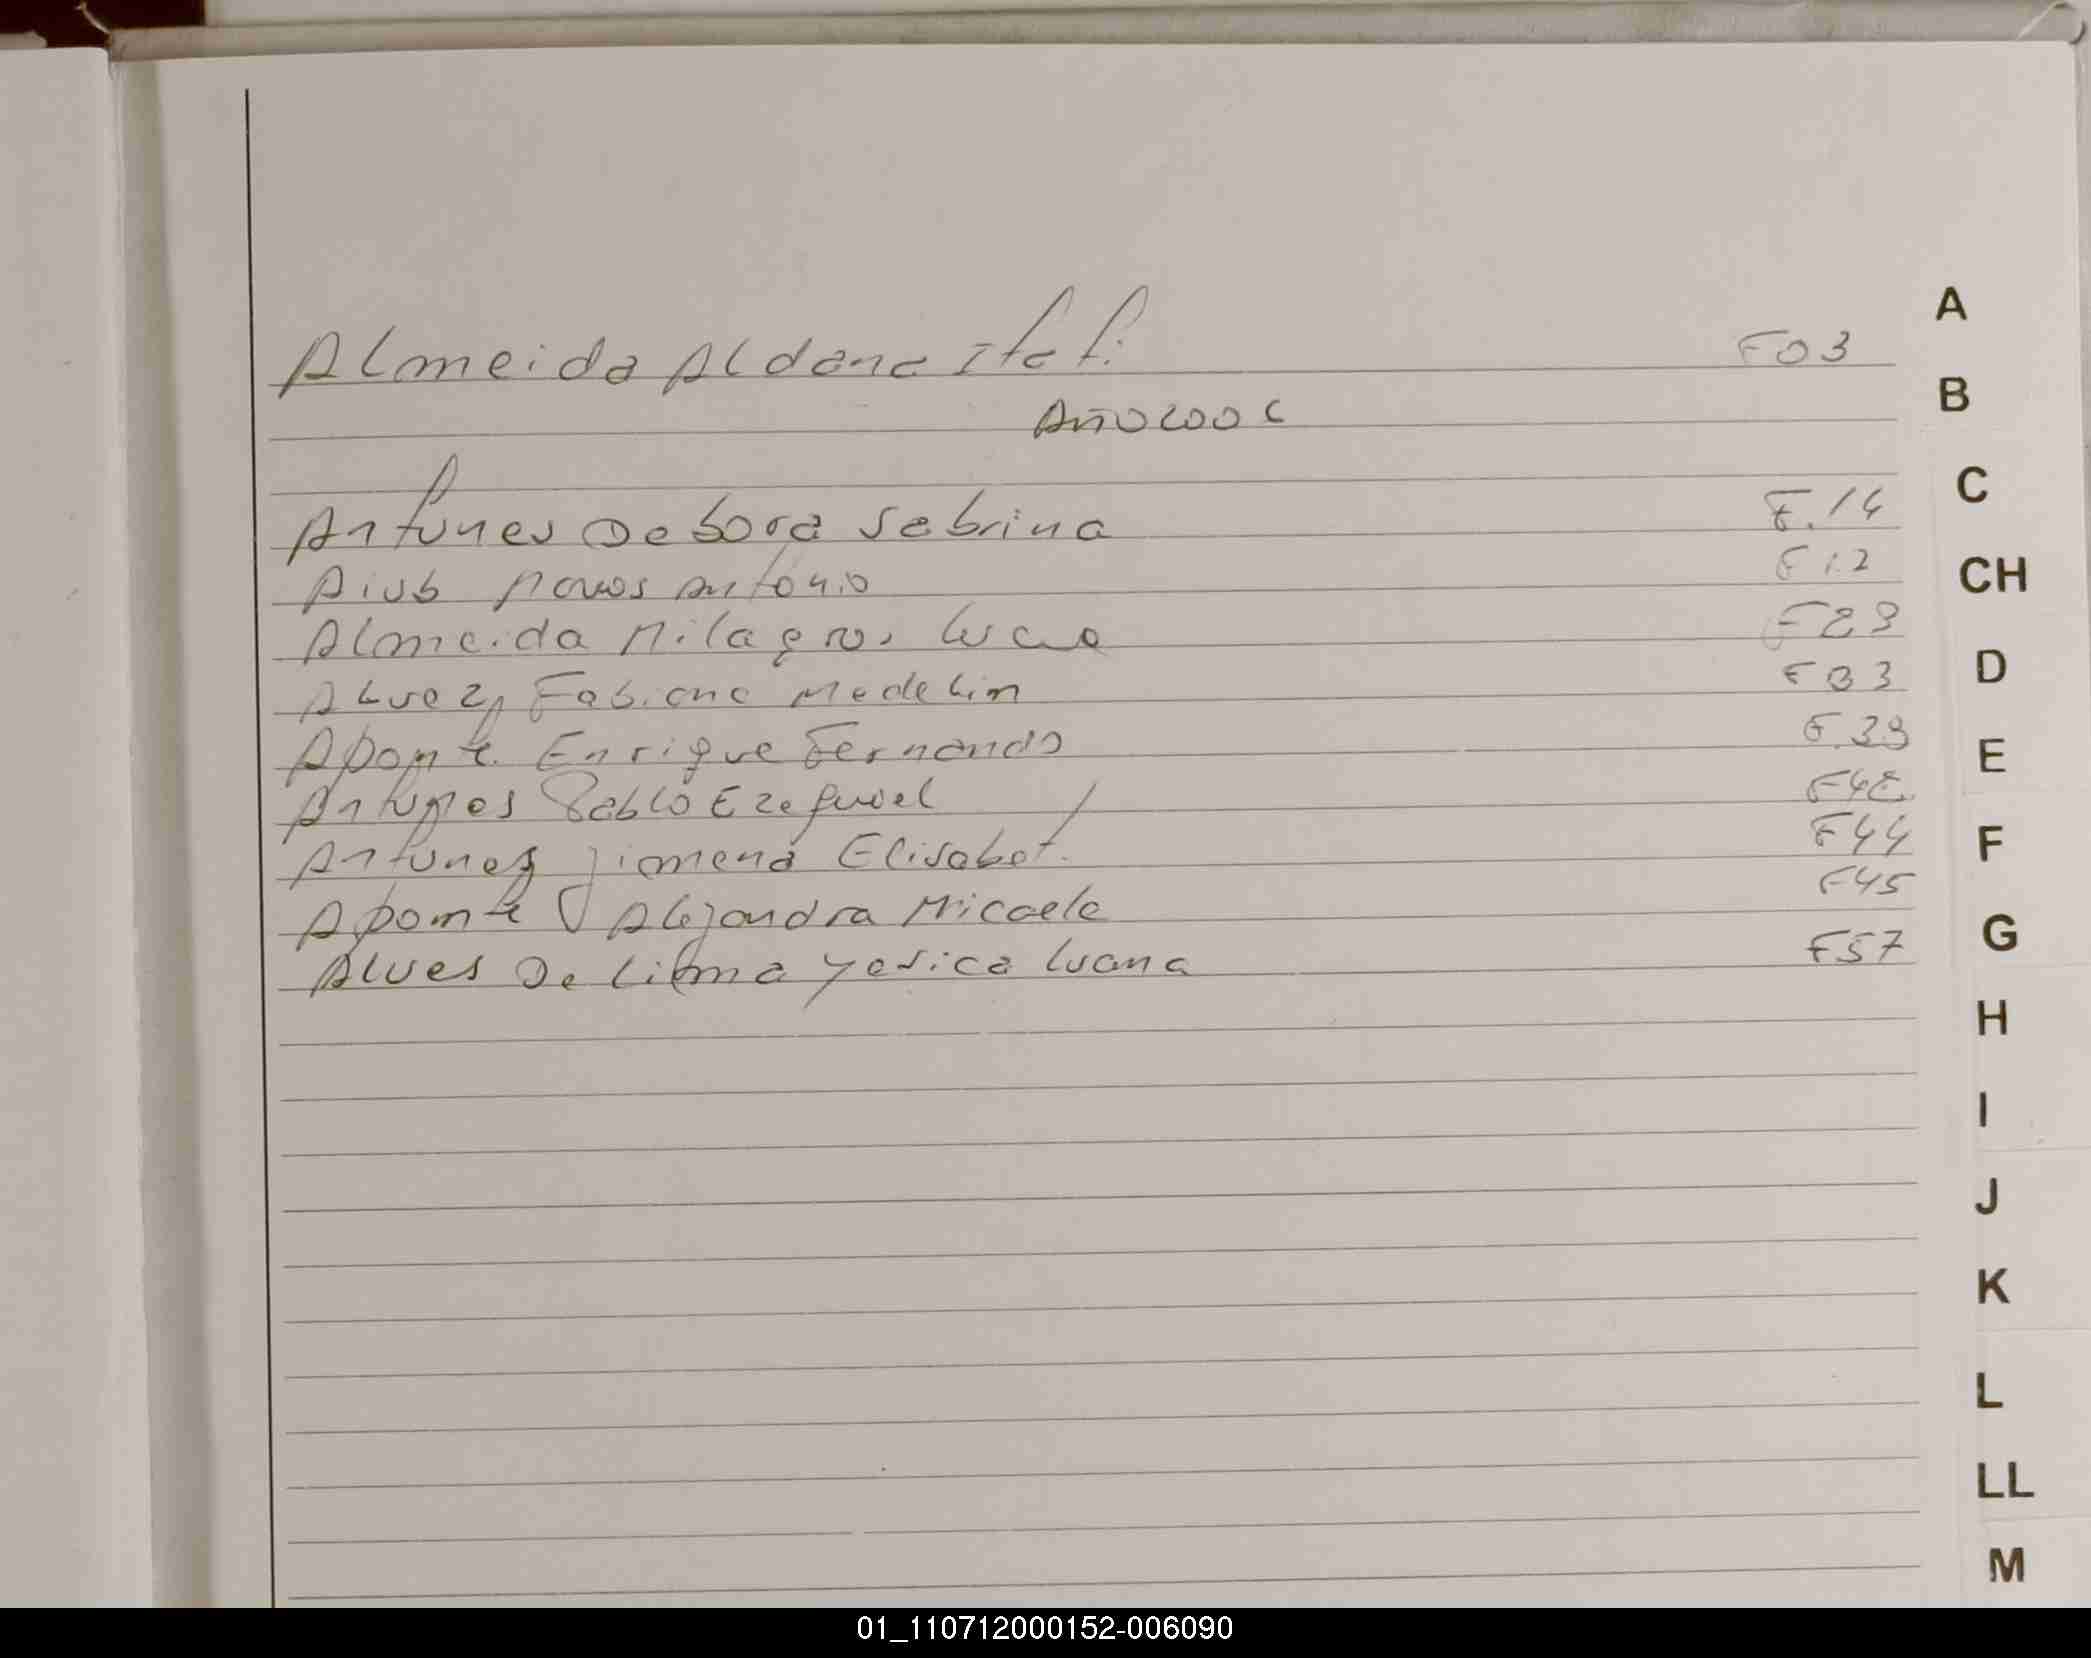 Almeida Aldana Itatí F03
A
Año 2006
B
Antunes Debora Sabrina F.14
C
Aiub Marcos Antonio F12
CH
Almeida Milagros Lucia F23
Alvez, Fabiana Madelin F33
D
Aponte Enrique Fernando F.39
E
Antunes Pablo Ezequiel F42
Antunez Jimena Elisabet. F44
F
Aponte Alejandra Micaela F45
G
Alves De Lima Yesica Luana F57
H
I
J
K
L
LL
M
01_110712000152-006090